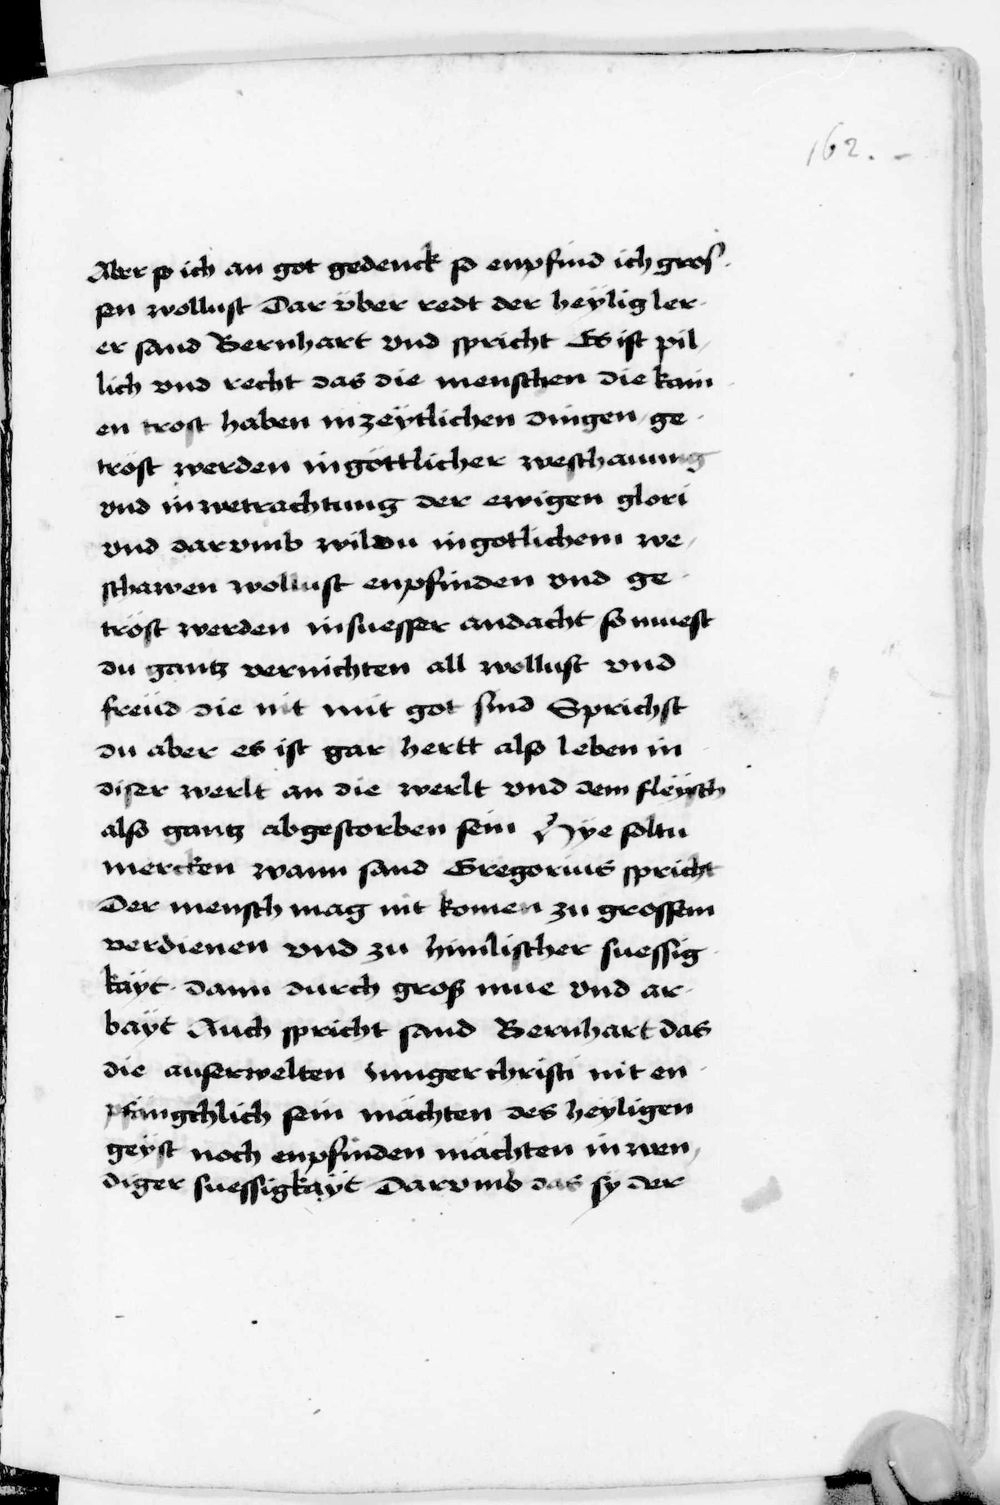 162.
Aber so ich an got gedenck so enpfind ich gros-
sen wollust Dar über redt der heylig ler-
er sand Bernhart vnd spricht Es ist pil-
lich vnd recht das die menschen die kain-
en trost haben in zeytlichen dingen ge-
tröst werden in göttlicher weschauung
vnd in wetrachtung der ewigen glori
vnd darvmb wildu in gotlichem we-
schawen wollust enpfinden vnd ge-
tröst werden in suesser andacht so muest
du gantz vernichten all wollust vnd
freüd die nit mit got sind Sprichst
du aber es ist gar hertt also leben in
diser werlt an die werlt vnd dem fleysch
also gantz abgestorben sein Hye soltu
mercken wann sand Gregorius spricht
Der mensch mag nit komen zu grossem
verdienen vnd zu himlischer suessig-
käyt dann durch groß mue vnd ar-
bayt Auch spricht sand Bernhart das
die auserwelten Junger christi nit en-
pfängchlich sein mächten des heyligen
geyst noch enpfinden mächten in wen-
diger suessigkäyt Darvmb das sy der